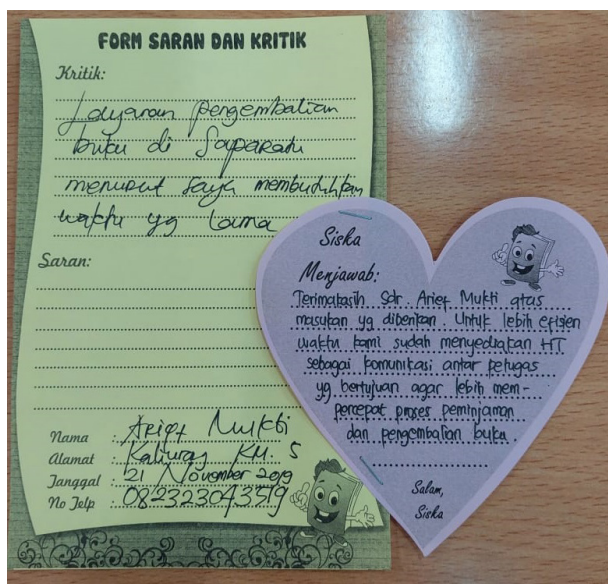 FORM SARAN DAN KRITIK
Kritik:
Layanan pengembalian
buku di
menurut saya membutuhkan
waktu yg lama
Saran:
Nama : Arief Mukti
Alamat : Kaliurang KM. 5
Tanggal : 21 November 2019
No Telp : 082323043519
Siska
Menjawab:
Terimakasih Sdr. Arief Mukti atas
masukan yg diberikan. Untuk lebih efisien
waktu kami sudah menyediakan HT
sebagai komunikasi antar petugas
yg bertujuan agar lebih mem-
percepat proses peminjaman
dan pengembalian buku.
Salam,
Siska